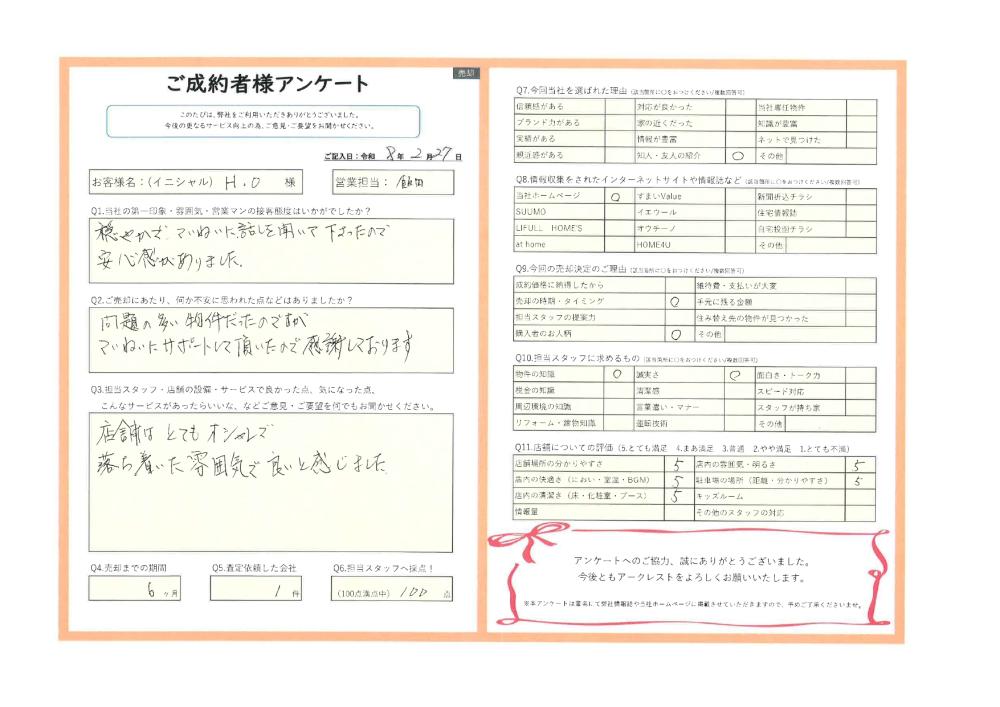 売却
ご成約者様アンケート
このたびは、弊社をご利用いただきありがとうございました。
今後の更なるサービス向上の為、ご意見・ご要望をお聞かせください。
ご記入日：令和 8年 2月27日
お客様名：(イニシャル) H.O 様
営業担当： 飯田
Q1.当社の第一印象・雰囲気・営業マンの接客態度はいかがでしたか？
穏やかで、ていねいに話しを聞いて下さったので
安心感がありました。
Q2.ご売却にあたり、何か不安に思われた点などはありましたか？
問題の多い物件だったのですが
ていねいにサポートして頂いたので感謝しております
Q3.担当スタッフ・店舗の設備・サービスで良かった点、気になった点、
こんなサービスがあったらいいな、などご意見・ご要望を何でもお聞かせください。
店舗はとてもオシャレで
落ち着いた雰囲気で良いと感じました。
Q4.売却までの期間
6 ヶ月
Q5.査定依頼した会社
1 件
Q6.担当スタッフへ採点！
(100点満点中) 100 点
Q7.今回当社を選ばれた理由 (該当箇所に○をおつけください/複数回答可)
信頼感がある 対応が良かった 当社専任物件
ブランド力がある 家の近くだった 知識が豊富
実績がある 情報が豊富 ネットで見つけた
親近感がある 知人・友人の紹介 ○ その他
Q8.情報収集をされたインターネットサイトや情報誌など (該当箇所に○をおつけください/複数回答可)
当社ホームページ ○ すまいValue 新聞折込チラシ
SUUMO イエウール 住宅情報誌
LIFULL HOME'S オウチーノ 自宅投函チラシ
at home HOME4U その他
Q9.今回の売却決定のご理由 (該当箇所に○をおつけください/複数回答可)
成約価格に納得したから 維持費・支払いが大変
売却の時期・タイミング ○ 手元に残る金額
担当スタッフの提案力 住み替え先の物件が見つかった
購入者のお人柄 ○ その他
Q10.担当スタッフに求めるもの (該当箇所に○をおつけください/複数回答可)
物件の知識 ○ 誠実さ ○ 面白さ・トーク力
税金の知識 清潔感 スピード対応
周辺環境の知識 言葉遣い・マナー スタッフが持ち家
リフォーム・建物知識 運転技術 その他
Q11.店舗についての評価 (5.とても満足 4.まあ満足 3.普通 2.やや満足 1.とても不満)
店舗場所の分かりやすさ 5 店内の雰囲気・明るさ 5
店内の快適さ（におい・室温・BGM） 5 駐車場の場所（距離・分かりやすさ） 5
店内の清潔さ（床・化粧室・ブース） 5 キッズルーム
情報量 その他のスタッフの対応
アンケートへのご協力、誠にありがとうございました。
今後ともアークレストをよろしくお願いいたします。
※本アンケートは匿名にて弊社情報誌や当社ホームページに掲載させていただきますので、予めご了承くださいませ。